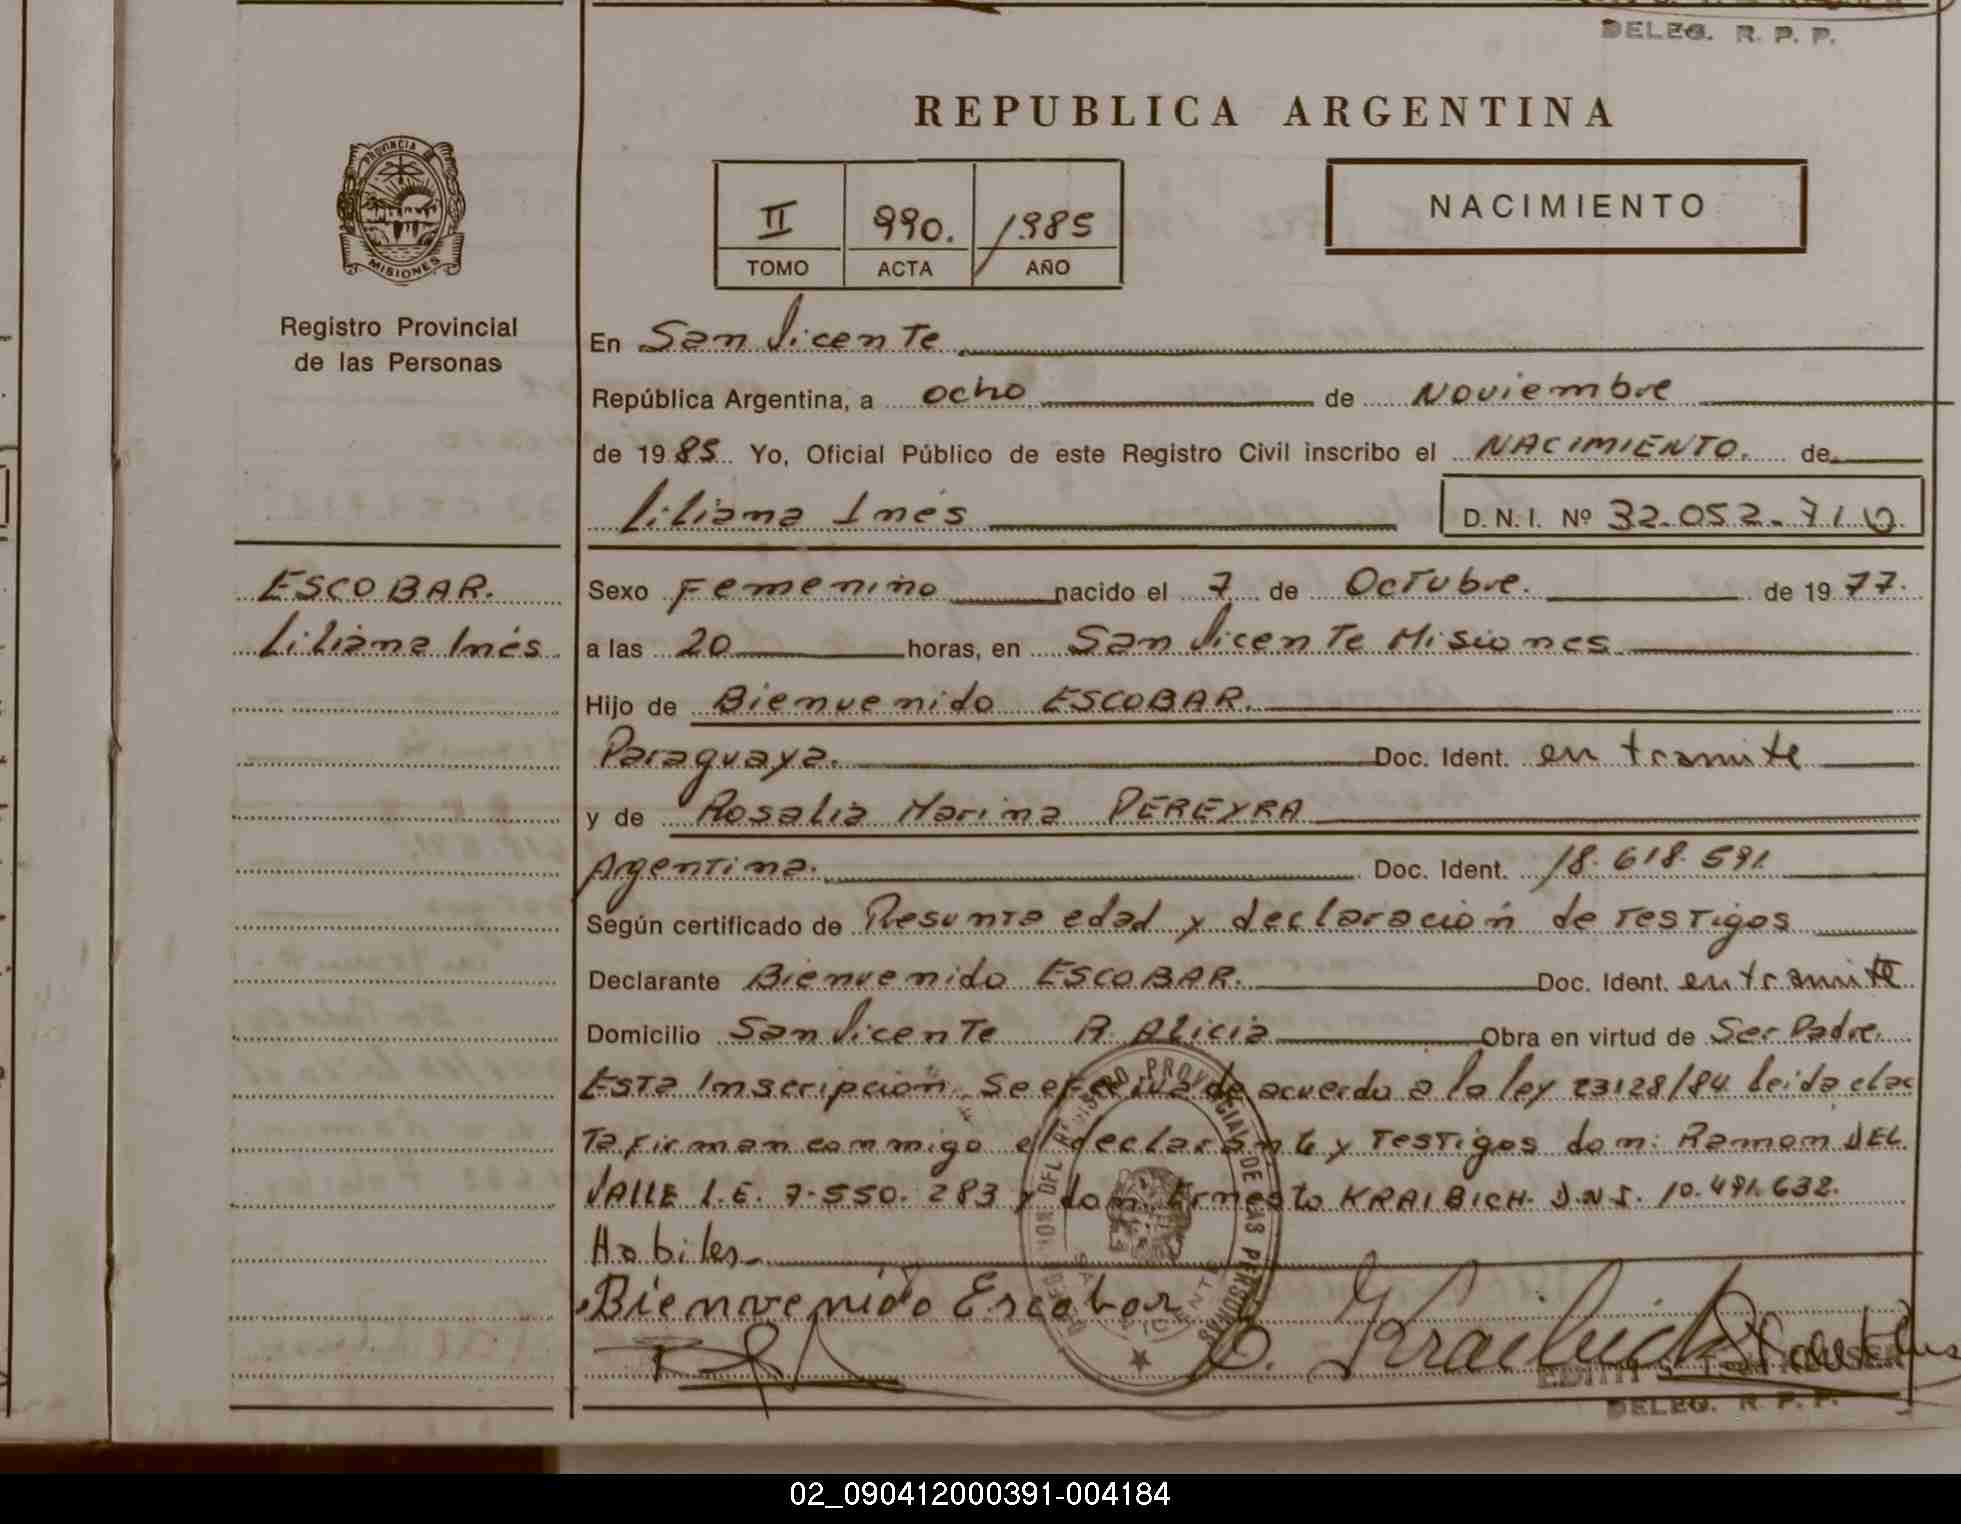 DELEG. R. P. P.
REPUBLICA ARGENTINA
PROVINCIA DE
MISIONES
Registro Provincial
de las Personas
II 990. 1985
TOMO ACTA AÑO
NACIMIENTO
En San Vicente
República Argentina, a ocho de Noviembre
de 1985 Yo, Oficial Público de este Registro Civil inscribo el NACIMIENTO. de
Liliana Inés D. N. I. Nº 32.052.710.
ESCOBAR.
Liliana Inés
Sexo Femenino nacido el 7 de Octubre. de 1977.
a las 20 horas, en San Vicente Misiones
Hijo de Bienvenido ESCOBAR.
Paraguaya. Doc. Ident. en tramite
y de Rosalia Marina PEREYRA
Argentina. Doc. Ident. 18.618.591.
Según certificado de Presunta edad y declaración de Testigos
Declarante Bienvenido ESCOBAR. Doc. Ident. en tramite
Domicilio San Vicente P. Alicia Obra en virtud de Ser Padre.
Esta Inscripcion. Se efectiva de acuerdo a la ley 23128/84 leida el ac
Ta firman conmigo el declarante y Testigos don: Ramon DEL
VALLE L.E. 7.550.283 y don Ernesto KRAIBICH. D.N.I. 10.491.632.
Habiles.
Bienvenido Escobar
E. Kraibich
DELEGACION DEL REGISTRO PROVINCIAL DE LAS PERSONAS
SAN VICENTE
EDITH S.
DELEG. R. P. P.
02_090412000391-004184